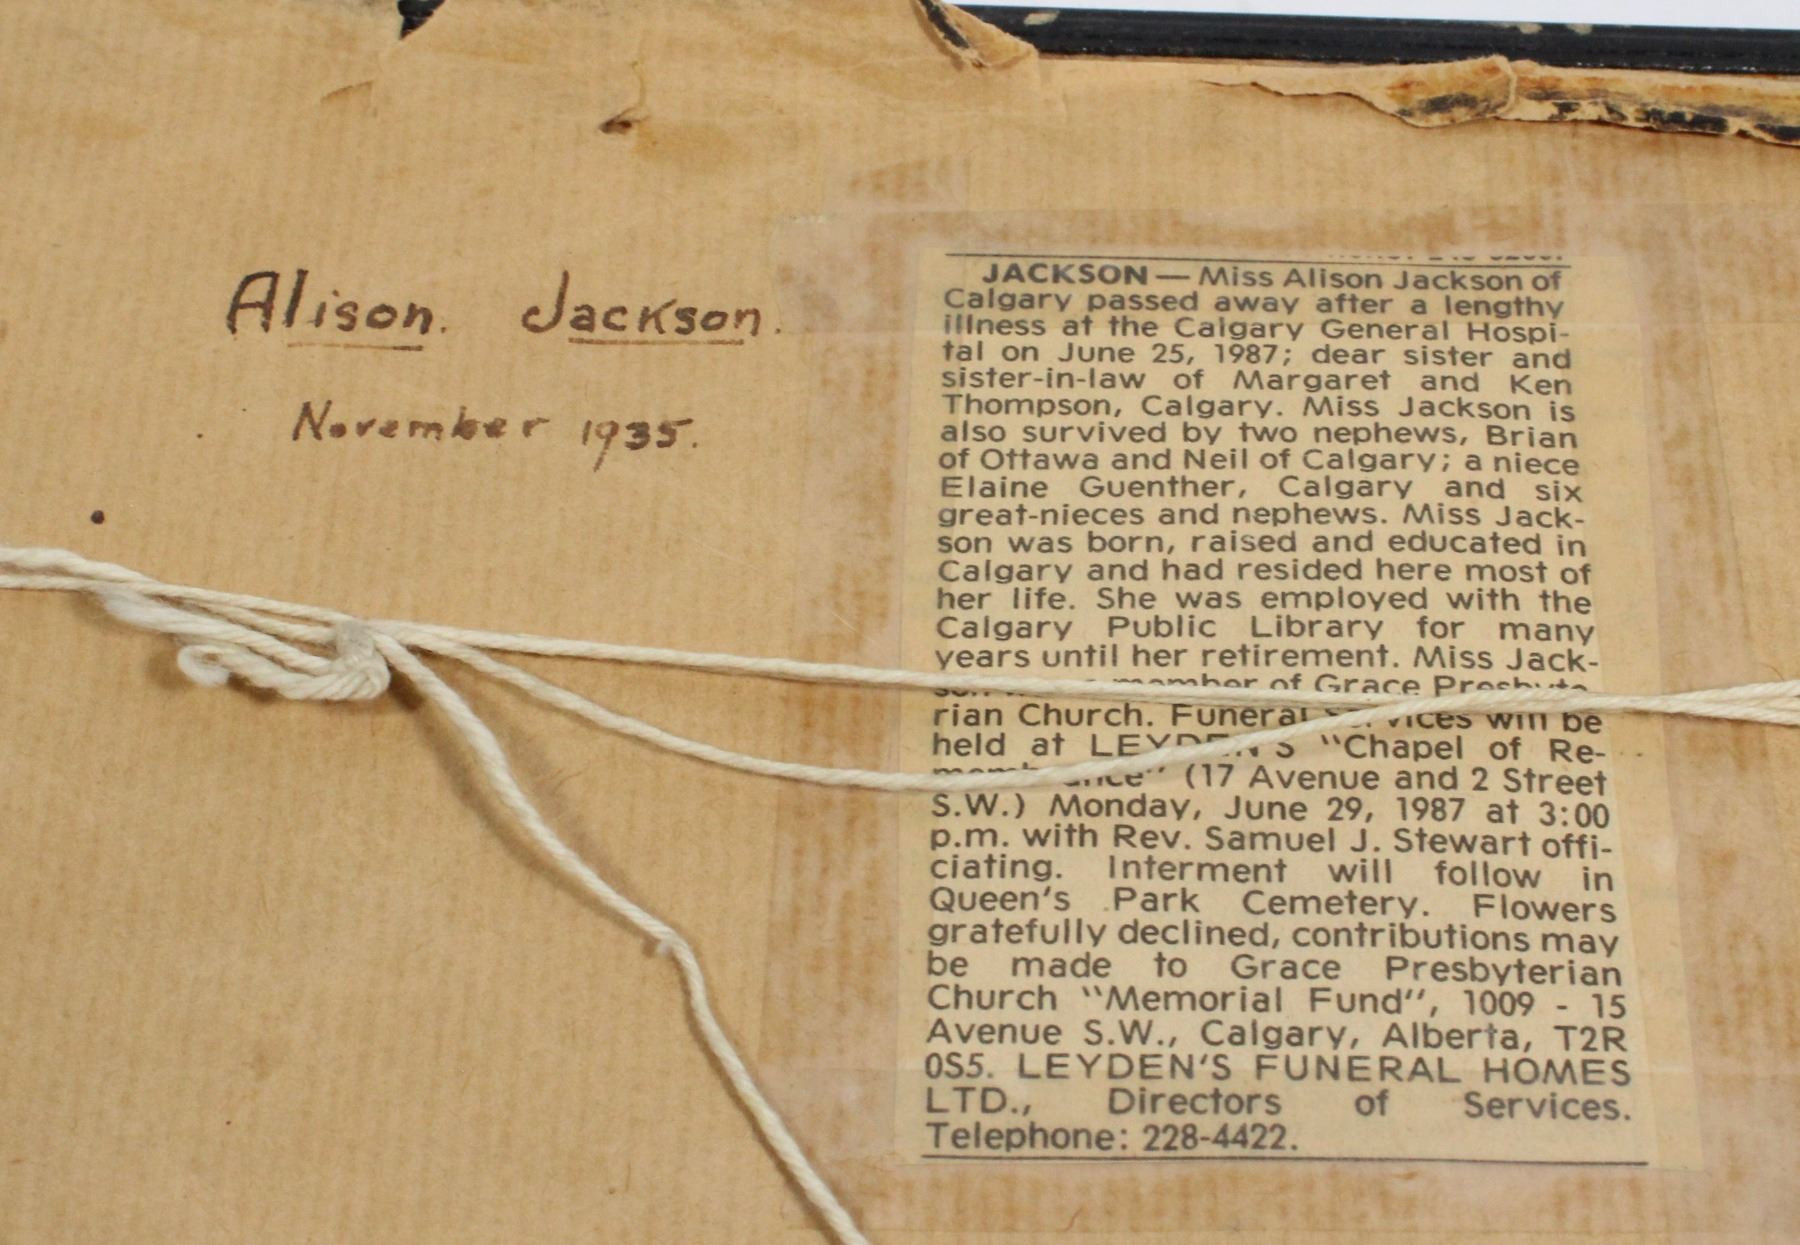 Alison. Jackson.
November 1935.
JACKSON — Miss Alison Jackson of
Calgary passed away after a lengthy
illness at the Calgary General Hospi-
tal on June 25, 1987; dear sister and
sister-in-law of Margaret and Ken
Thompson, Calgary. Miss Jackson is
also survived by two nephews, Brian
of Ottawa and Neil of Calgary; a niece
Elaine Guenther, Calgary and six
great-nieces and nephews. Miss Jack-
son was born, raised and educated in
Calgary and had resided here most of
her life. She was employed with the
Calgary Public Library for many
years until her retirement. Miss Jack-
son member of Grace Presbyte-
rian Church. Funeral Services will be
held at LEYDEN'S "Chapel of Re-
membrance" (17 Avenue and 2 Street
S.W.) Monday, June 29, 1987 at 3:00
p.m. with Rev. Samuel J. Stewart offi-
ciating. Interment will follow in
Queen's Park Cemetery. Flowers
gratefully declined, contributions may
be made to Grace Presbyterian
Church "Memorial Fund", 1009 - 15
Avenue S.W., Calgary, Alberta, T2R
0S5. LEYDEN'S FUNERAL HOMES
LTD., Directors of Services.
Telephone: 228-4422.